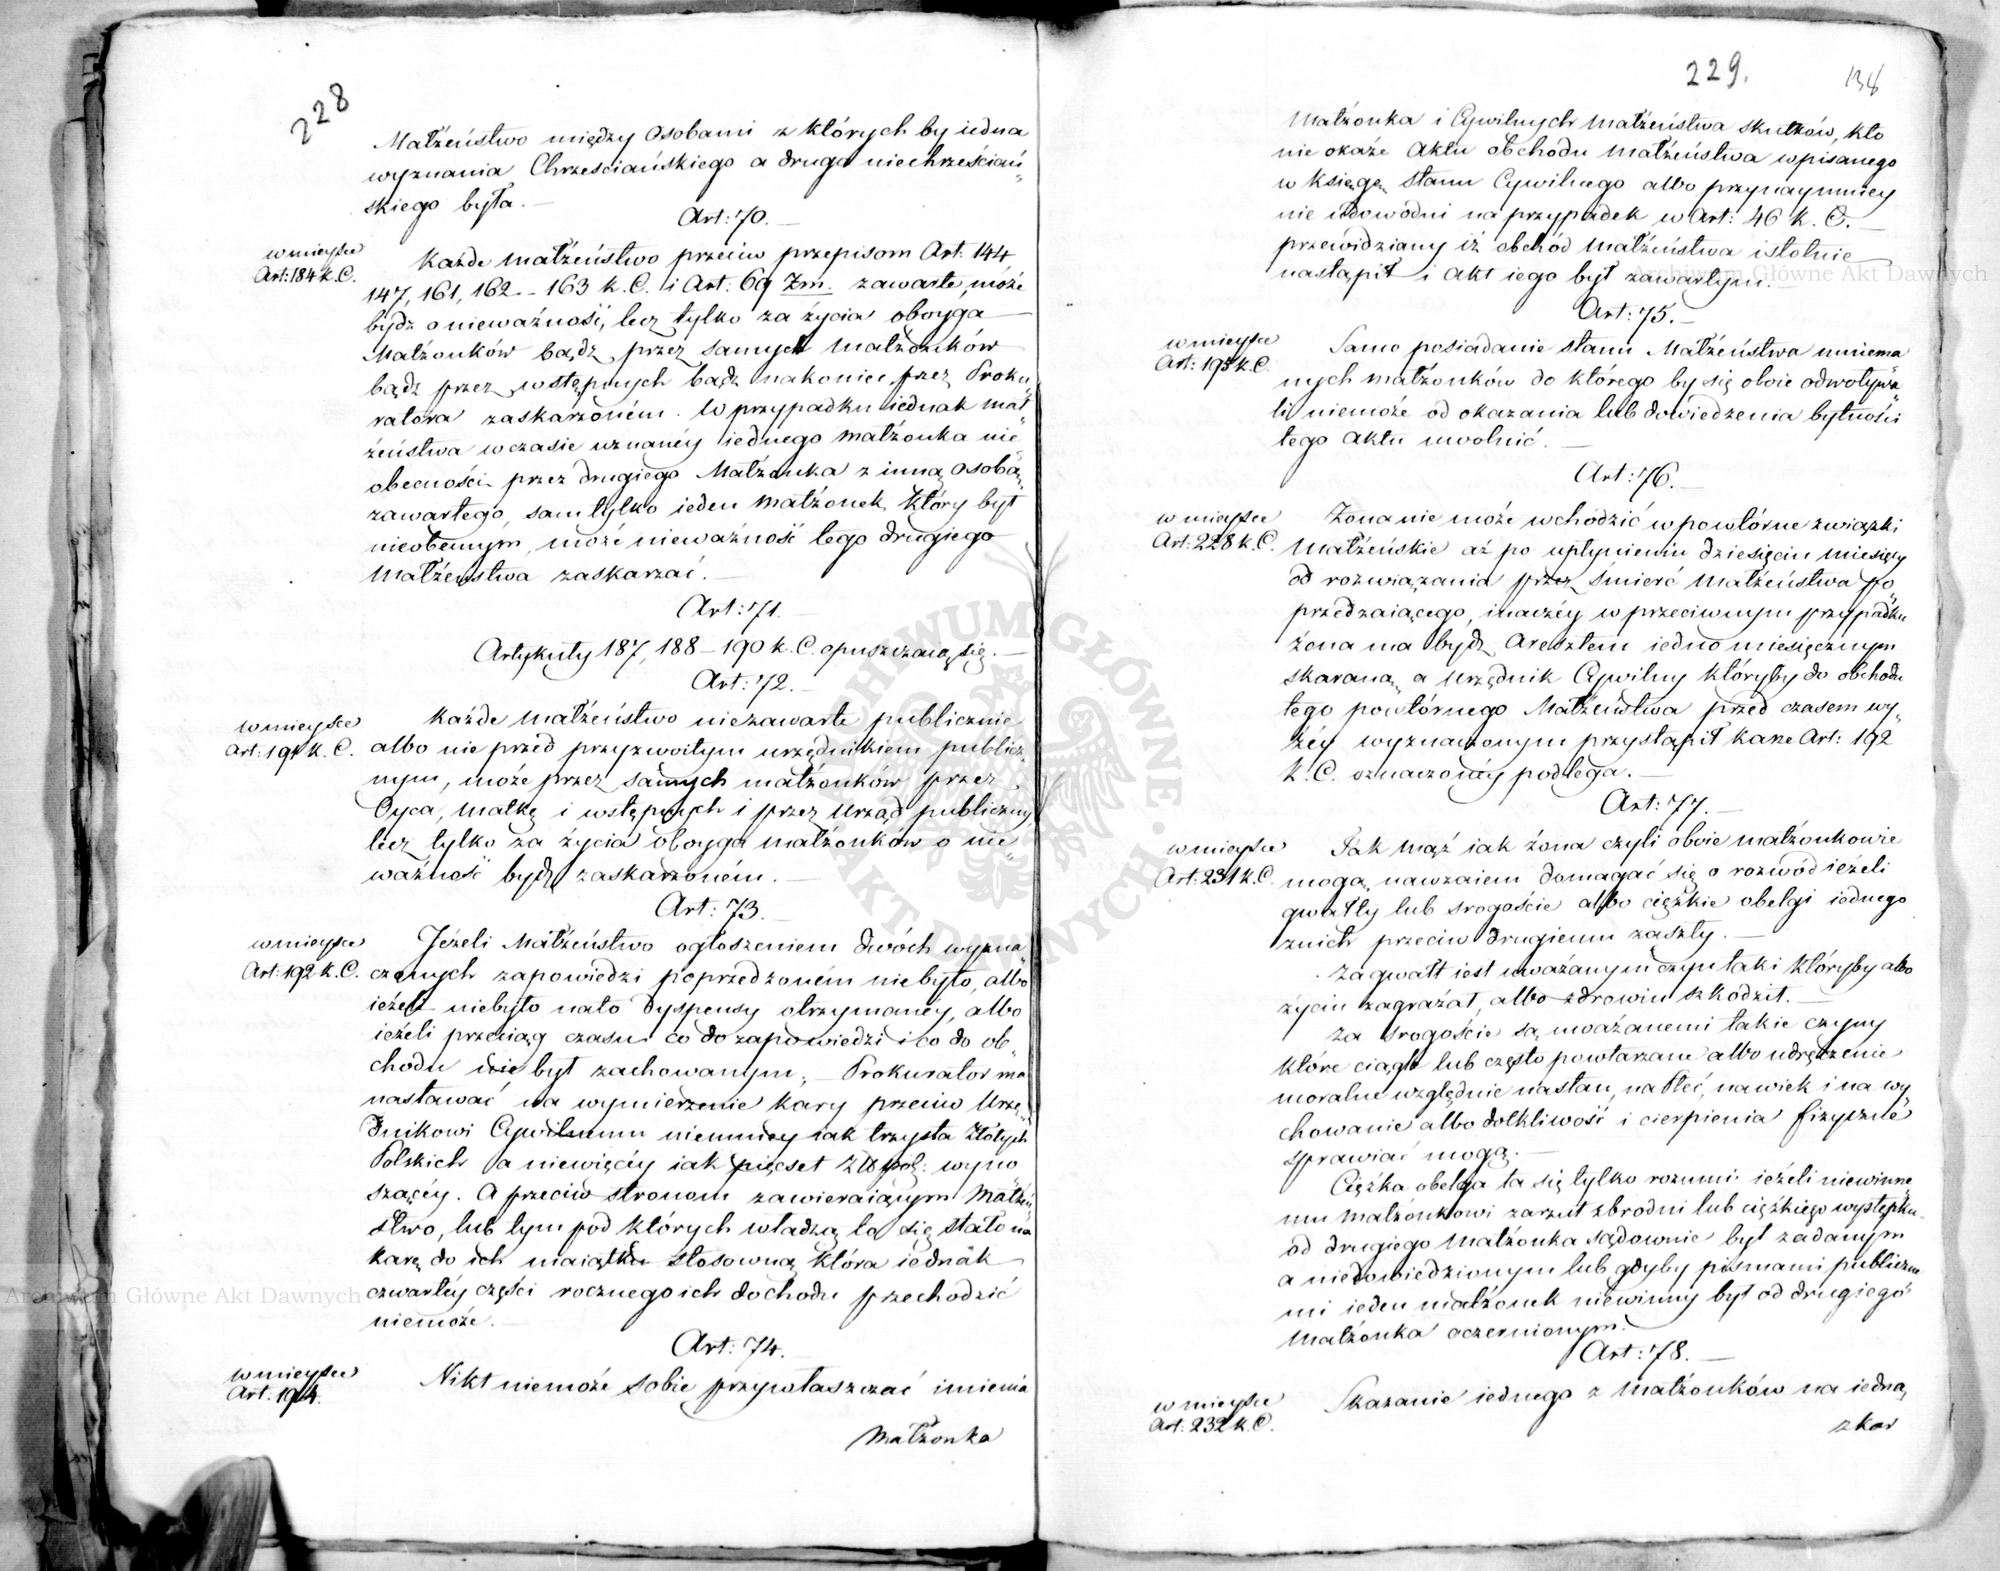 228
Małżeństwo między Osobami z których by iedna
wyznania Chrześciańskiego a druga niechrześciań„
skiego była. —
Art: 70. —
w mieysce
Art: 184 k. C.
Każde małżeństwo przeciw przepisom Art: 144
147, 161, 162 – 163 k. C. i Art: 69 Zm. zawarte, może
bydz o nieważność, lecz tylko za życia oboyga
Małżonków bądz przez samych małżonków
bądz przez wstępnych bądz nakoniec przez Proku„
ratora zaskarżoném. W przypadku iednak mał„
żeństwa w czasie uznanéy iednego małżonka nie„
obecności przez drugiego Małżonka z inną osobą
zawartego, sam tylko ieden małżonek, który był
nieobecnym, może nieważność tego drugiego
Małżeństwa zaskarzać. —
Art: 71. —
Artykuły 187, 188 – 190 k. C. opuszczaią się. —
Art: 72. —
w mieysce
Art: 191 k. C.
Każde małżeństwo niezawarte publicznie
albo nie przed przyzwoitym urzędnikiem publicz„
nym, może przez samych małżonków przez
Oyca, matkę i wstępnych i przez Urząd publiczny
lecz tylko za życia oboyga małżonków o nie„
ważność bydź zaskarżoném. —
Art: 73. —
w mieysce
Art: 192 k. C.
Jeżeli Małżeństwo ogłoszeniem dwóch wyzna„
czonych zapowiedzi poprzedzoném nie było, albo
ieżeli niebyło nato dyspensy otrzymanéy, albo
ieżeli przeciąg czasu co do zapowiedzi i co do ob„
chodu nie był zachowanym, — Prokurator ma
nastawać na wymierzenie kary przeciw Urzę„
dnikowi Cywilnemu niemniéy iak trzysta Złotych
Polskich a niewięcéy iak pięćset Zł: pol: wyno
szącéy. A przeciw stronom zawieraiącym Małżeń„
stwo, lub tym pod których władzą to się stało na
karę do ich maiątku stosowną która iednak
czwartéy części rocznego ich dochodu przechodzić
niemoże. —
Art: 74. —
w mieysce
Art: 194.
Nikt niemoże sobie przywłaszczać imienia
Małżonka
229.
138
Małżonka i Cywilnych małżeństwa skutków, kto
nie okaże Aktu obchodu małżeństwa wpisanego
w Księgę stanu Cywilnego albo przynaymniéy
nie udowodni na przypadek w Art: 46 k. C. —
przewidziany iż obchód małżeństwa istotnie
nastąpił i akt iego był zawartym. —
Art: 75. —
w mieysce
Art: 195 k. C.
Samo posiadanie stanu Małżeństwa mniema
nych małżonków do którego by się oboie odwoływa„
li niemoże od okazania lub dowiedzenia bytności
tego aktu uwolnić. —
Art: 76. —
w mieysce
Art: 228 k. C.
Żona nie może wchodzić w powtórne związki
Małżeńskie aż po upłynieniu dziesięciu miesięcy
od rozwiązania przez Śmierć małżeństwa po„
przedzaiącego, inaczéy w przeciwnym przypadku
żona ma bydź Aresztem iedno miesięcznym
skaraną a Urzędnik Cywilny któryby do obchodu
tego powtórnego Małżeństwa przed czasem wy„
żéy wyznaczonym przystąpił karze Art: 192
k. C. oznaczonéy podlega. —
Art: 77. —
w mieysce
Art: 231 k. C.
Tak mąż iak żona czyli oboie małżonkowie
mogą nawzaiem domagać się o rozwód ieżeli
gwałty lub srogoście albo ciężkie obelgi iednego
z nich przeciw drugiemu zaszły. —
Za gwałt iest uważanym czyn taki któryby albo
życiu zagrażał, albo zdrowiu szkodził. —
Za srogoście są uważanemi takie czyny
które ciągle lub często powtarzane albo udręczenie
moralne względnie na stan, na płeć, na wiek i na wy„
chowanie albo dotkliwość i cierpienia fizyczne
sprawiać mogą. —
Ciężka obelga ta się tylko rozumi ieżeli niewinne„
mu małżonkowi zarzut zbrodni lub ciężkiego występku
od drugiego małżonka sądownie był zadanym
a niedowiedzionym lub gdyby pismami publiczne
mi ieden małżonek niewinny był od drugiego
Małżonka oczernionym.
Art: 78. —
w mieysce
Art: 232 k. C.
Skazanie iednego z Małżonków na iedną
z kar
Archiwum Główne Akt Dawnych
Archiwum Główne Akt Dawnych
ARCHIWUM GŁÓWNE AKT DAWNYCH